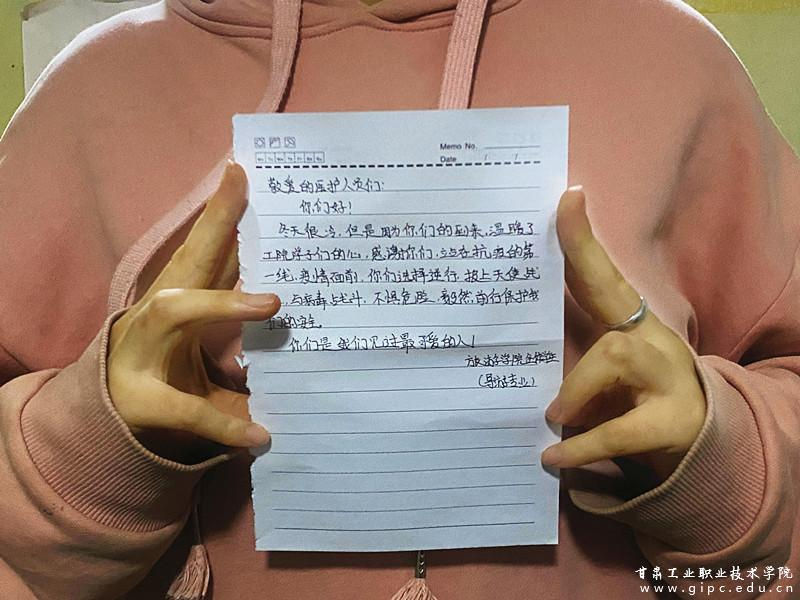 Memo No.
Mo Tu We Th Fr Sa Su
Date / /
敬爱的医护人员们:
你们好!
冬天很冷,但是因为你们的到来,温暖了
工院学子们的心,感谢你们,站在抗疫的第
一线,疫情面前,你们选择逆行,披上天使
与病毒战斗,不惧危险,毅然前行保护我
们的安全。
你们是我们见过最可爱的人!
旅游学院
(导游专业)
甘肃工业职业技术学院
www.gipc.edu.cn